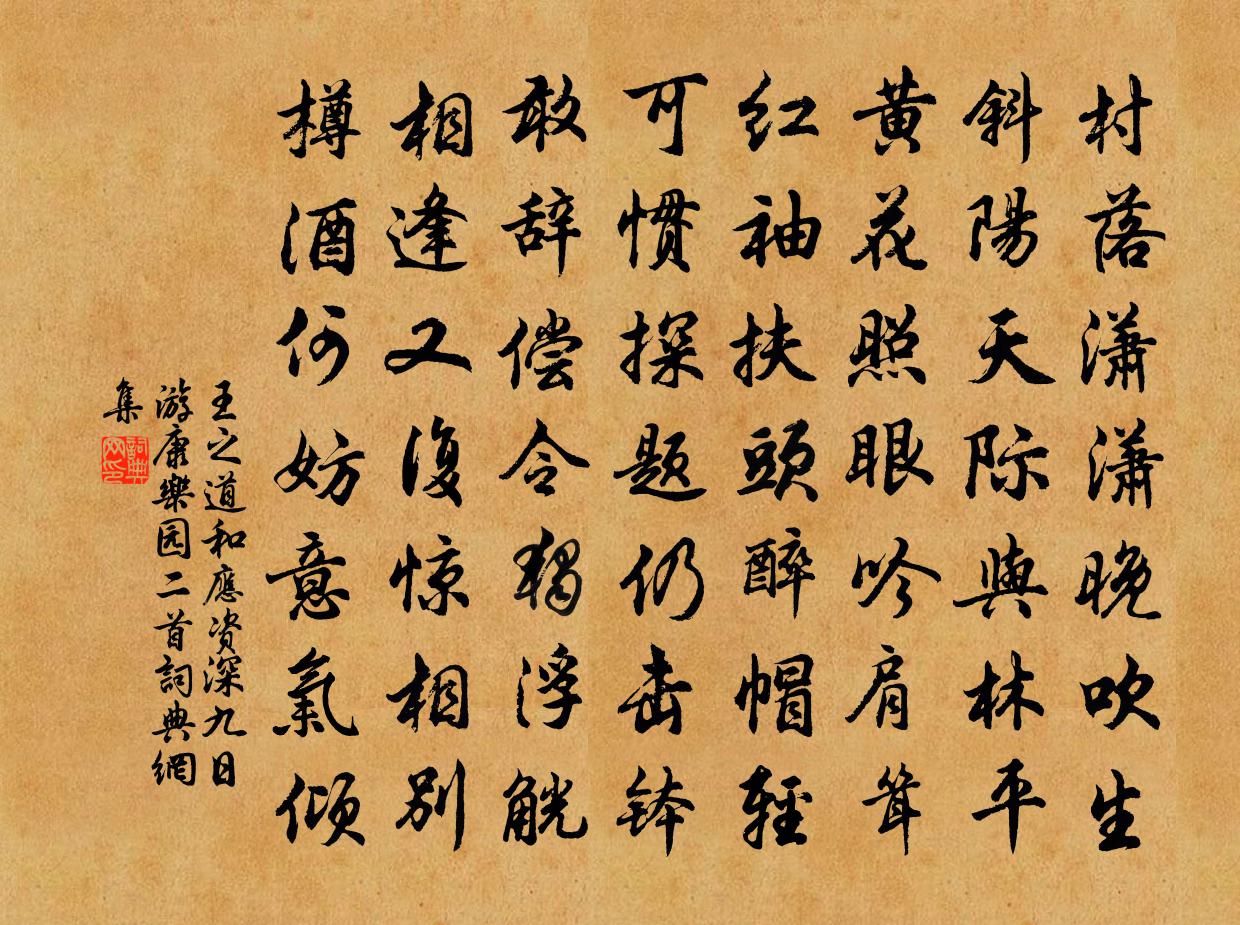 村落潇潇晚吹生
斜陽天际與林平
黄花照眼吟肩耸
红袖扶頭醉帽輕
可惯探题仍击钵
敢辞偿令独浮觥
相逢又復惊相别
樽酒何妨意氣倾
王之道和應资深九日
游康樂园二首詞典網
集